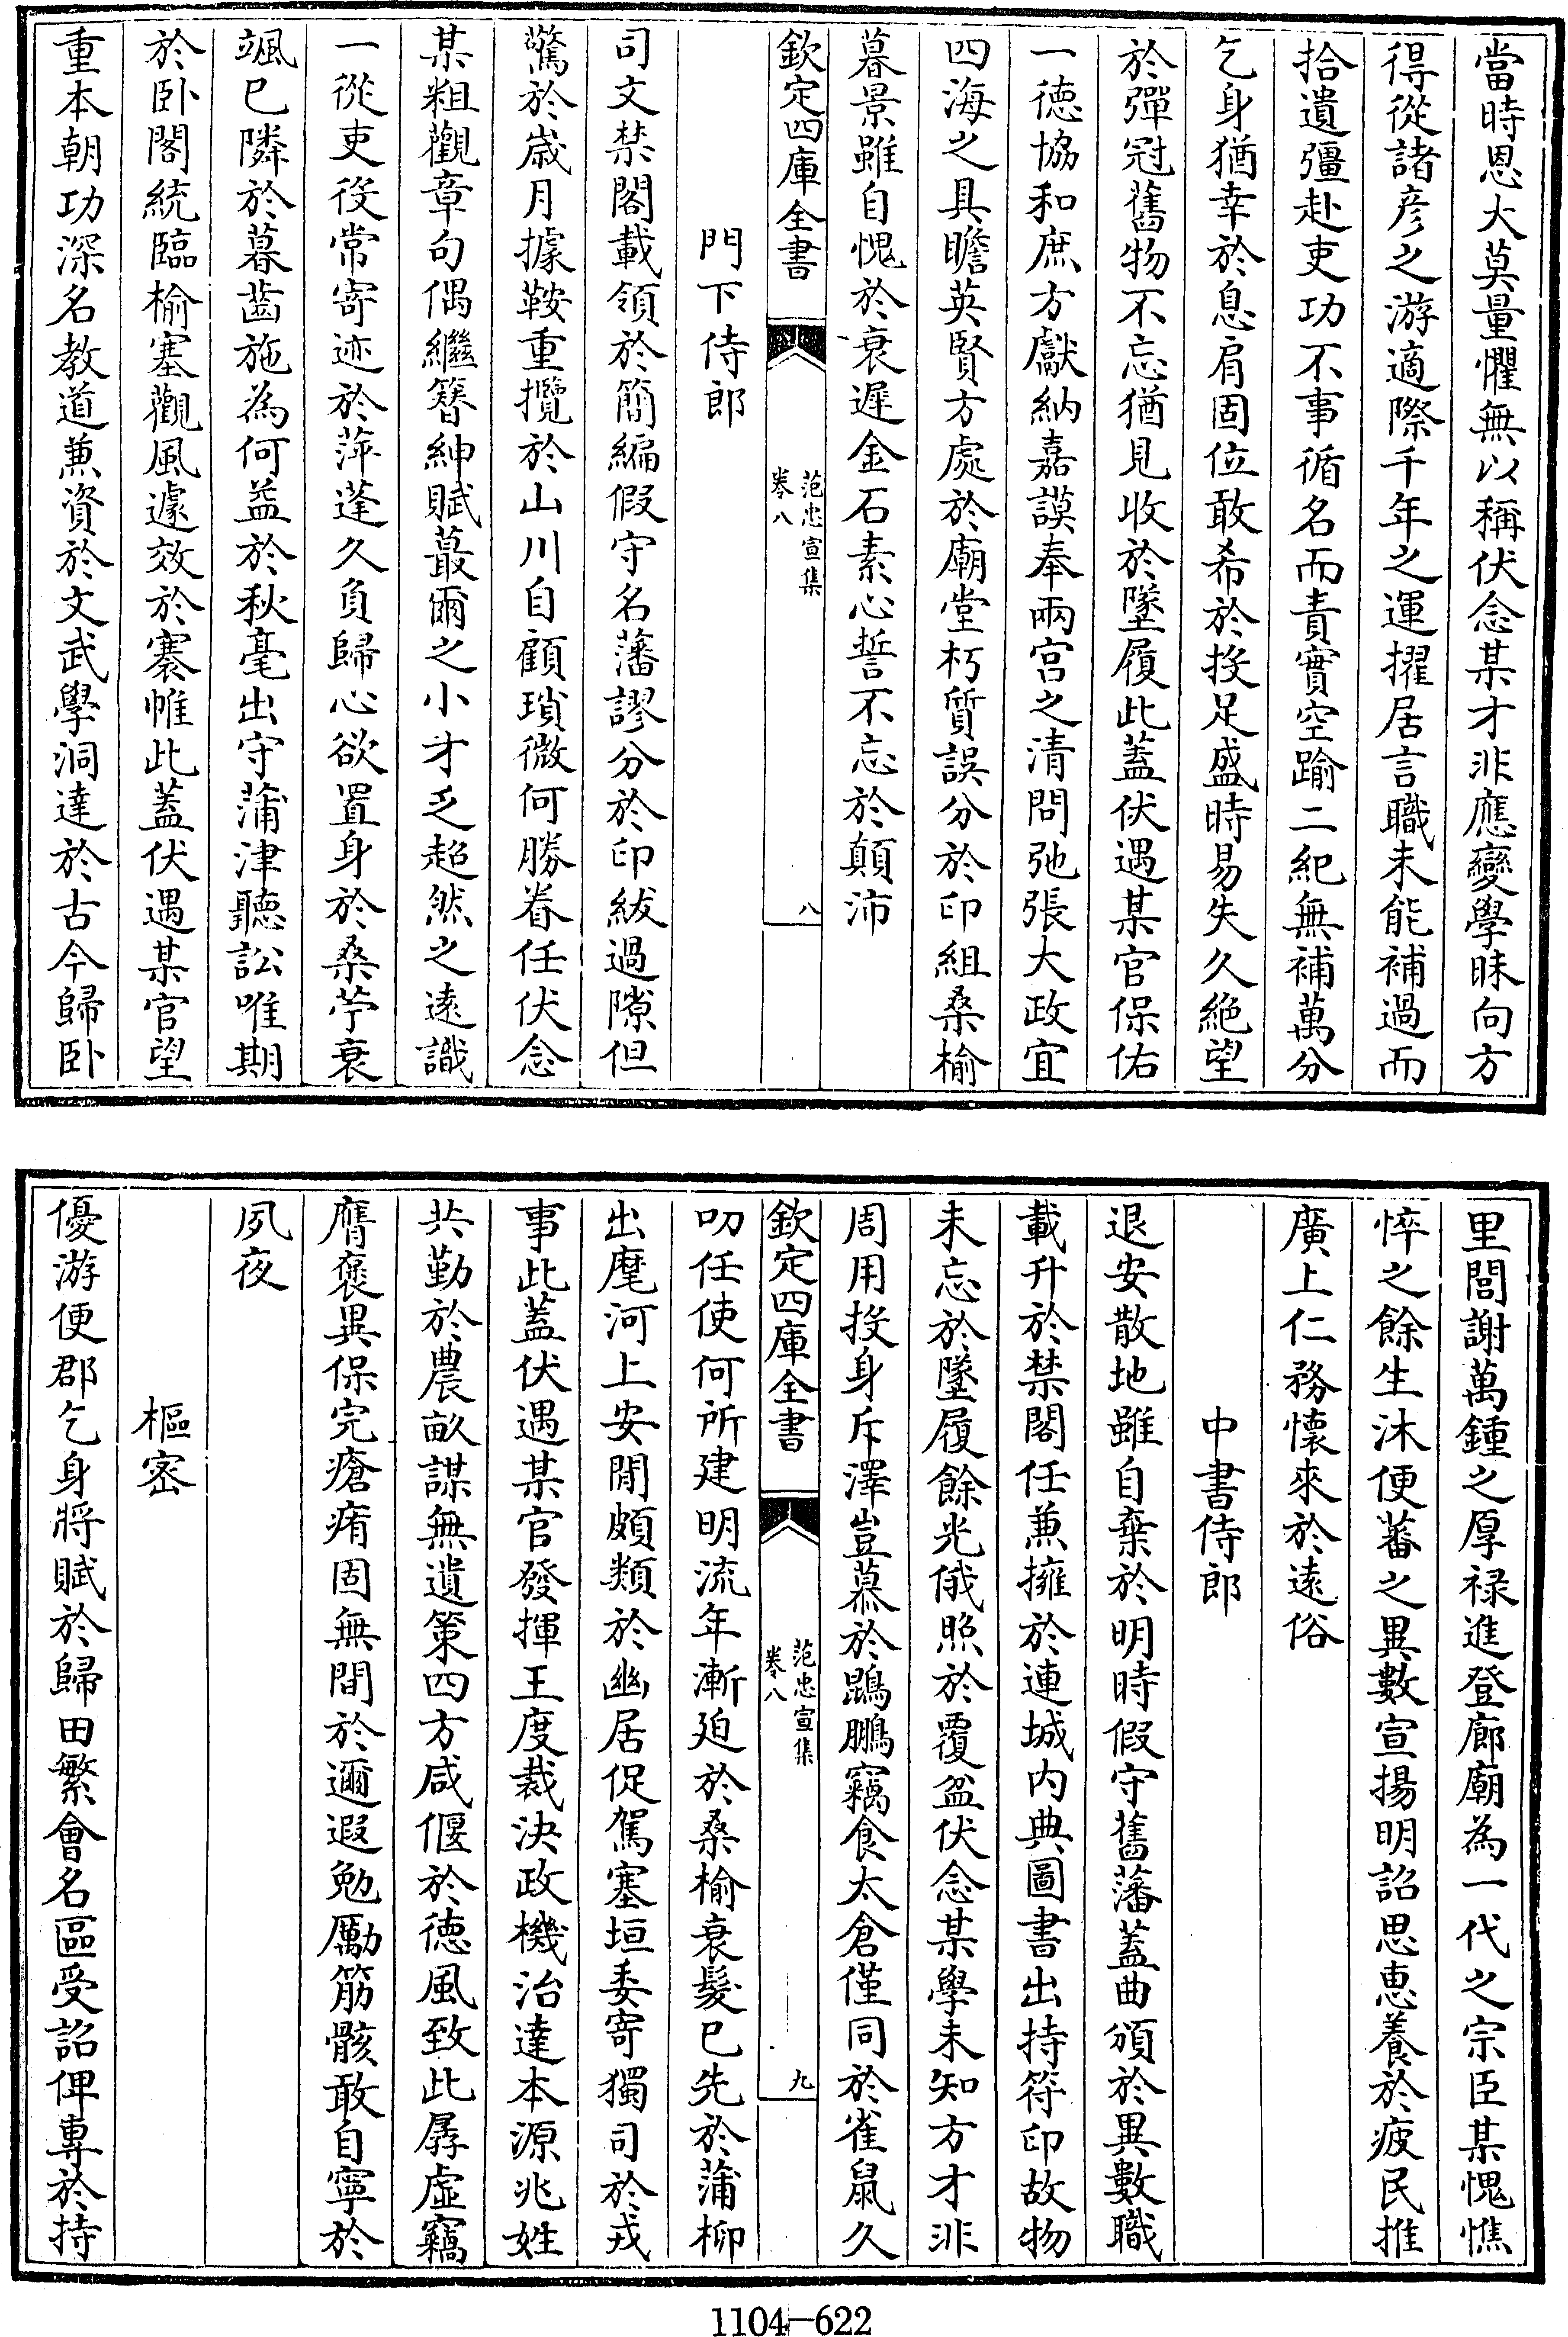 當時恩大莫量懼無以稱伏念某才非應變學昧向方
得從諸彦之游適際千年之運擢居言職未能補過而
拾遺彊赴吏功不事循名而責實空踰二紀無補萬分
乞身猶幸於息肩固位敢希於投足盛時易失久絶望
於彈冠舊物不忘猶見收於墜履此蓋伏遇某官保佑
一徳協和庶方獻納嘉謨奉兩宫之清問弛張大政宜
四海之具瞻英賢方處於廟堂朽質誤分於印組桑榆
暮景雖自愧於衰遲金石素心誓不忘於顛沛
欽定四庫全書
范忠宣集
卷八
八
門下侍郎
司文禁閣載領於簡編假守名藩謬分於印紱過隙但
驚於歳月據鞍重攬於山川自顧瑣微何勝眷任伏念
某粗觀章句偶繼簪紳賦蕞爾之小才乏超然之遠識
一從吏役常寄迹於萍蓬久負歸心欲置身於桑苧衰
颯已隣於暮齒施為何益於秋毫出守蒲津聽訟唯期
於卧閣統臨榆塞觀風遽效於褰帷此蓋伏遇某官望
重本朝功深名教道兼資於文武學洞達於古今歸卧
里閭謝萬鍾之厚禄進登廊廟為一代之宗臣某愧憔
悴之餘生沐便蕃之異數宣揚明詔思恵養於疲民推
廣上仁務懷來於遠俗
中書侍郎
退安散地雖自棄於明時假守舊藩蓋曲頒於異數職
載升於禁閣任兼擁於連城内典圖書出持符印故物
未忘於墜履餘光俄照於覆盆伏念某學未知方才非
周用投身斥澤豈慕於鵾鵬竊食太倉僅同於雀鼠久
欽定四庫全書
范忠宣集
卷八
九
叨任使何所建明流年漸廹於桑榆衰髮已先於蒲柳
出麾河上安閒頗類於幽居促駕塞垣委寄獨司於戎
事此蓋伏遇某官發揮王度裁決政機治達本源兆姓
共勤於農畝謀無遺策四方咸偃於徳風致此孱虚竊
膺褒異保完瘡痏固無間於邇遐勉勵筋骸敢自寧於
夙夜
樞密
優游便郡乞身將賦於歸田繁會名區受詔俾專於持
1104—622